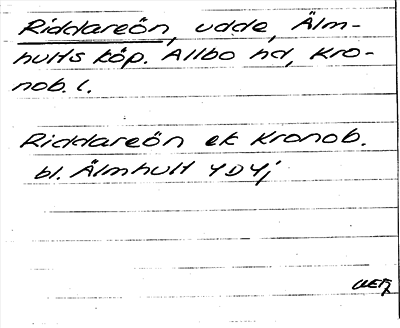 Riddareön, udde, Älm-
hults köp. Allbo hd, Kro-
nob. l.
Riddareön ek Kronob.
bl. Älmhult 4D4j